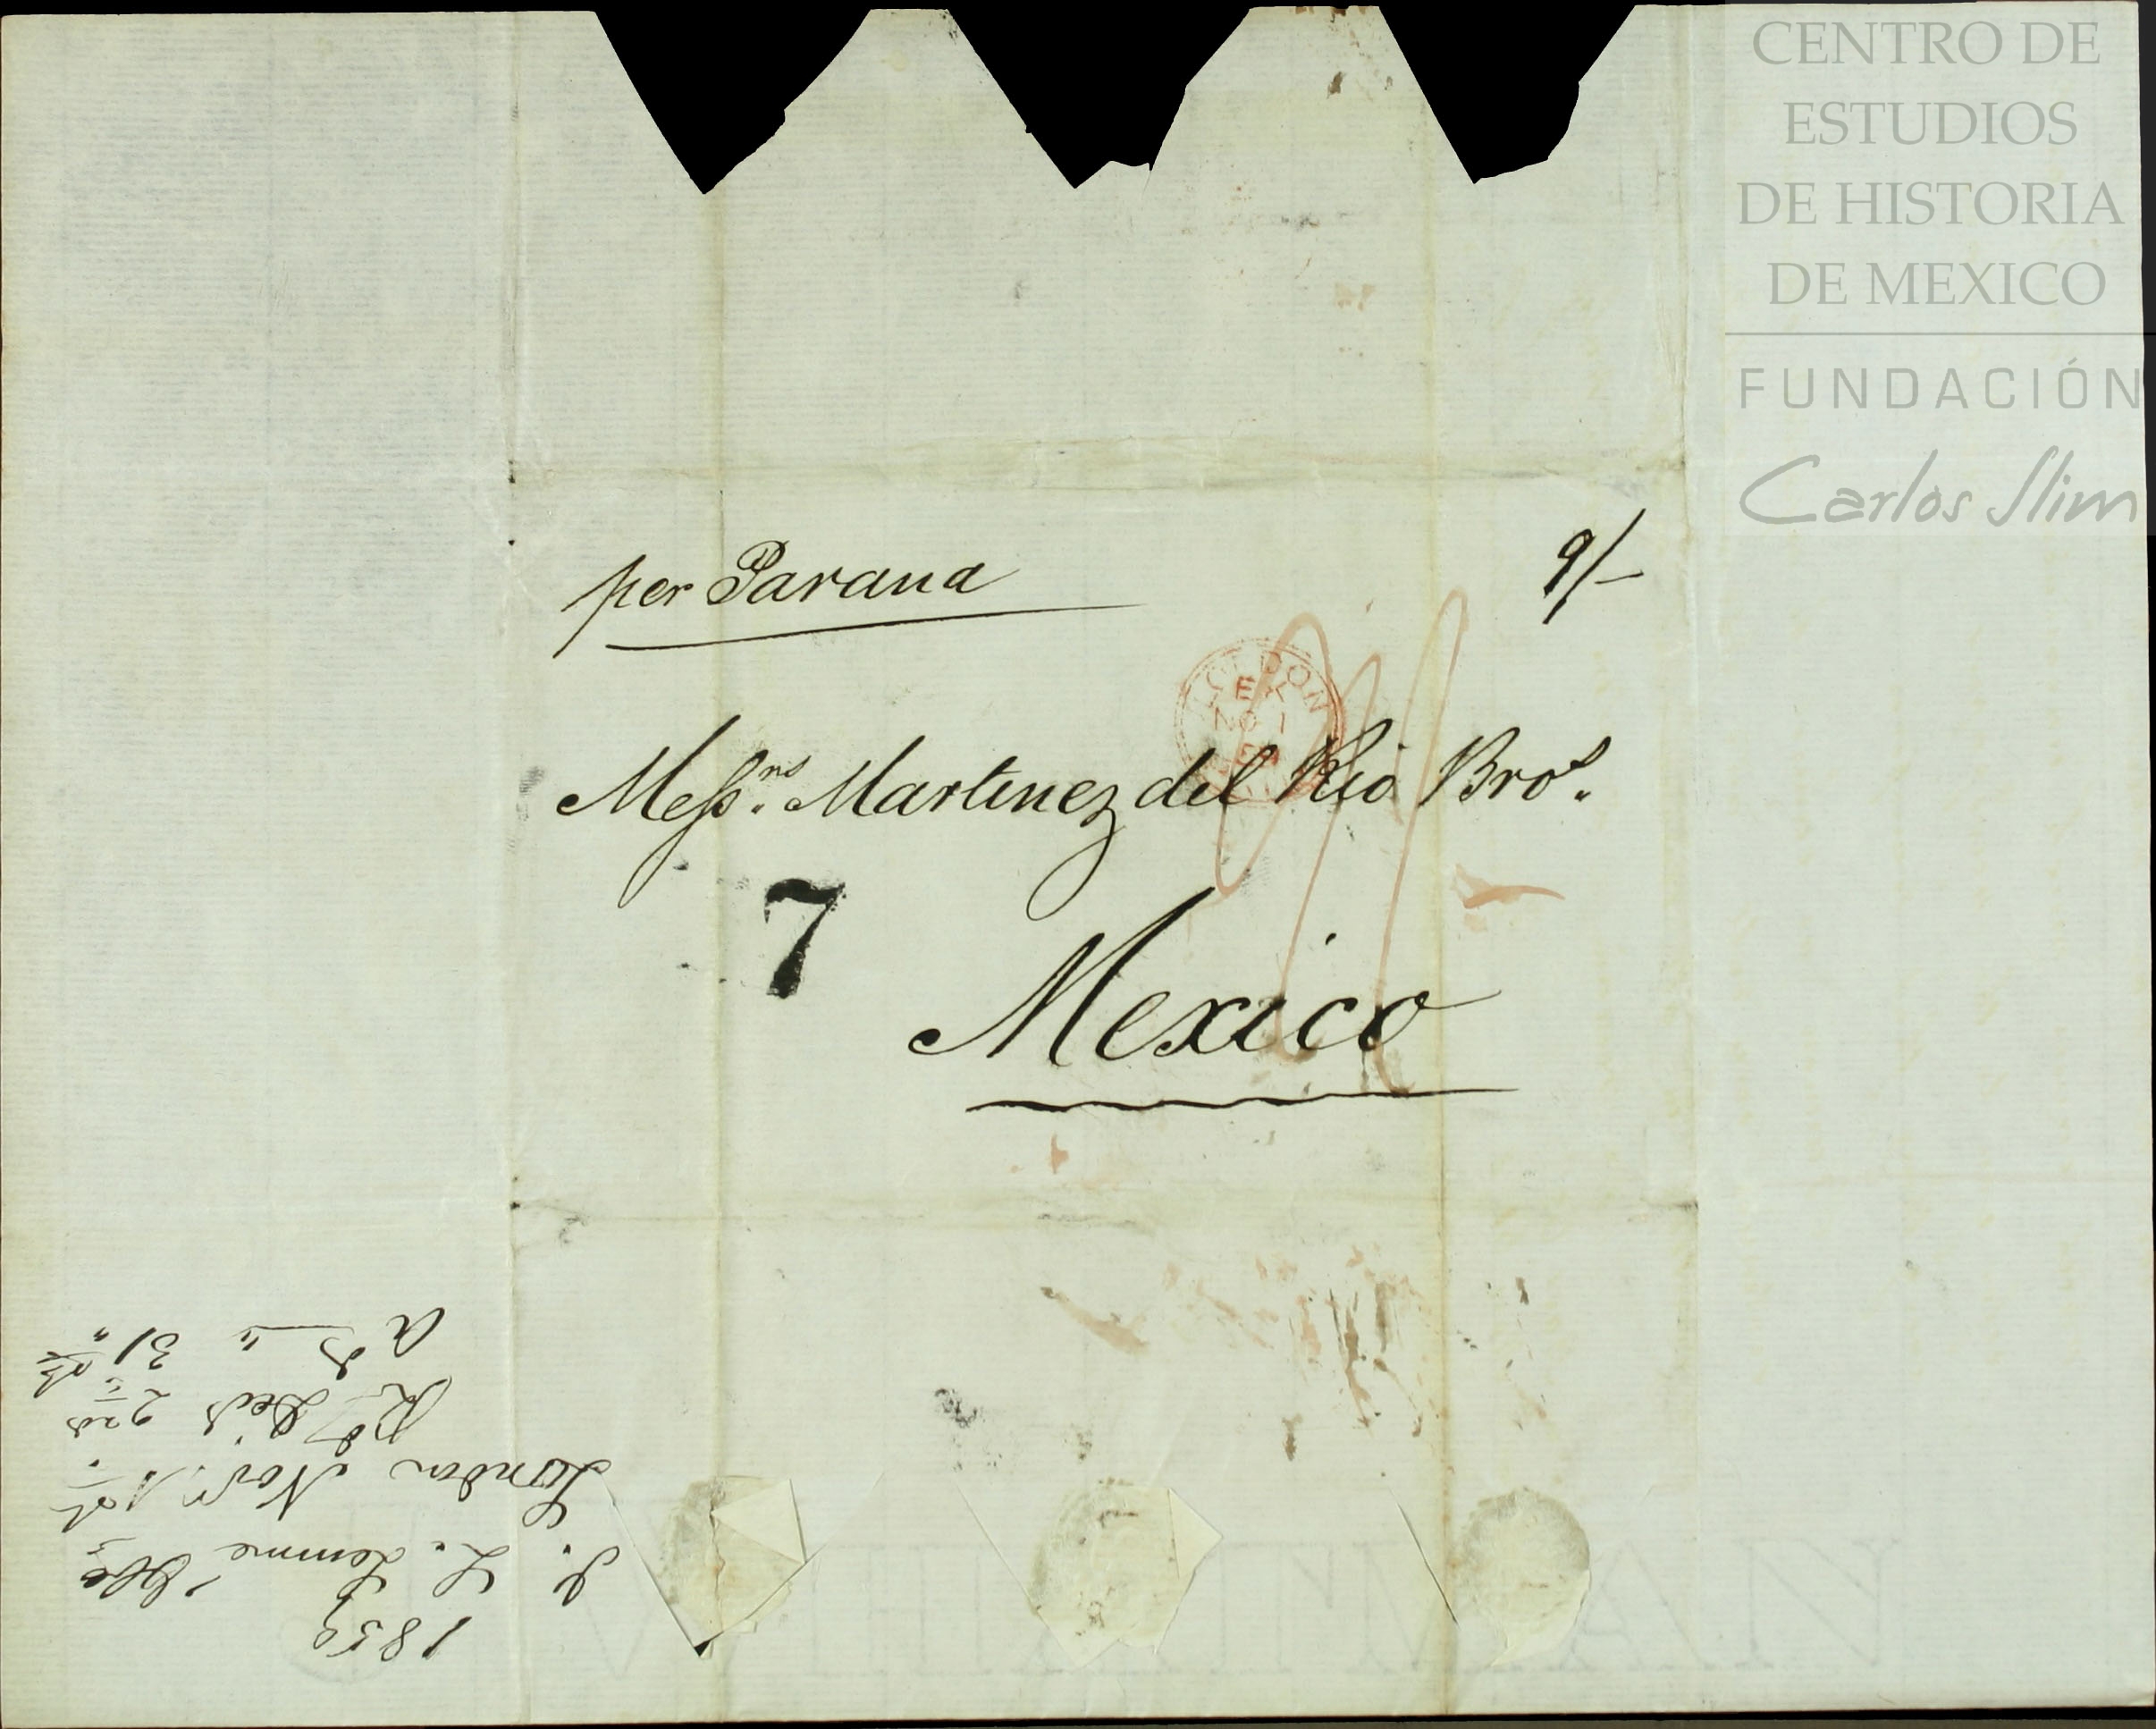 CENTRO DE
ESTUDIOS
DE HISTORIA
DE MEXICO
FUNDACIÓN
Carlos Slim
per Parana
9/-
LONDON
NO 1
59
Messrs. Martinez del Rio Bros.
7
Mexico
1859
J. L. Lemmé &Co
London Novr. 1st.
Rd Decb 2nd
Ad " 31st